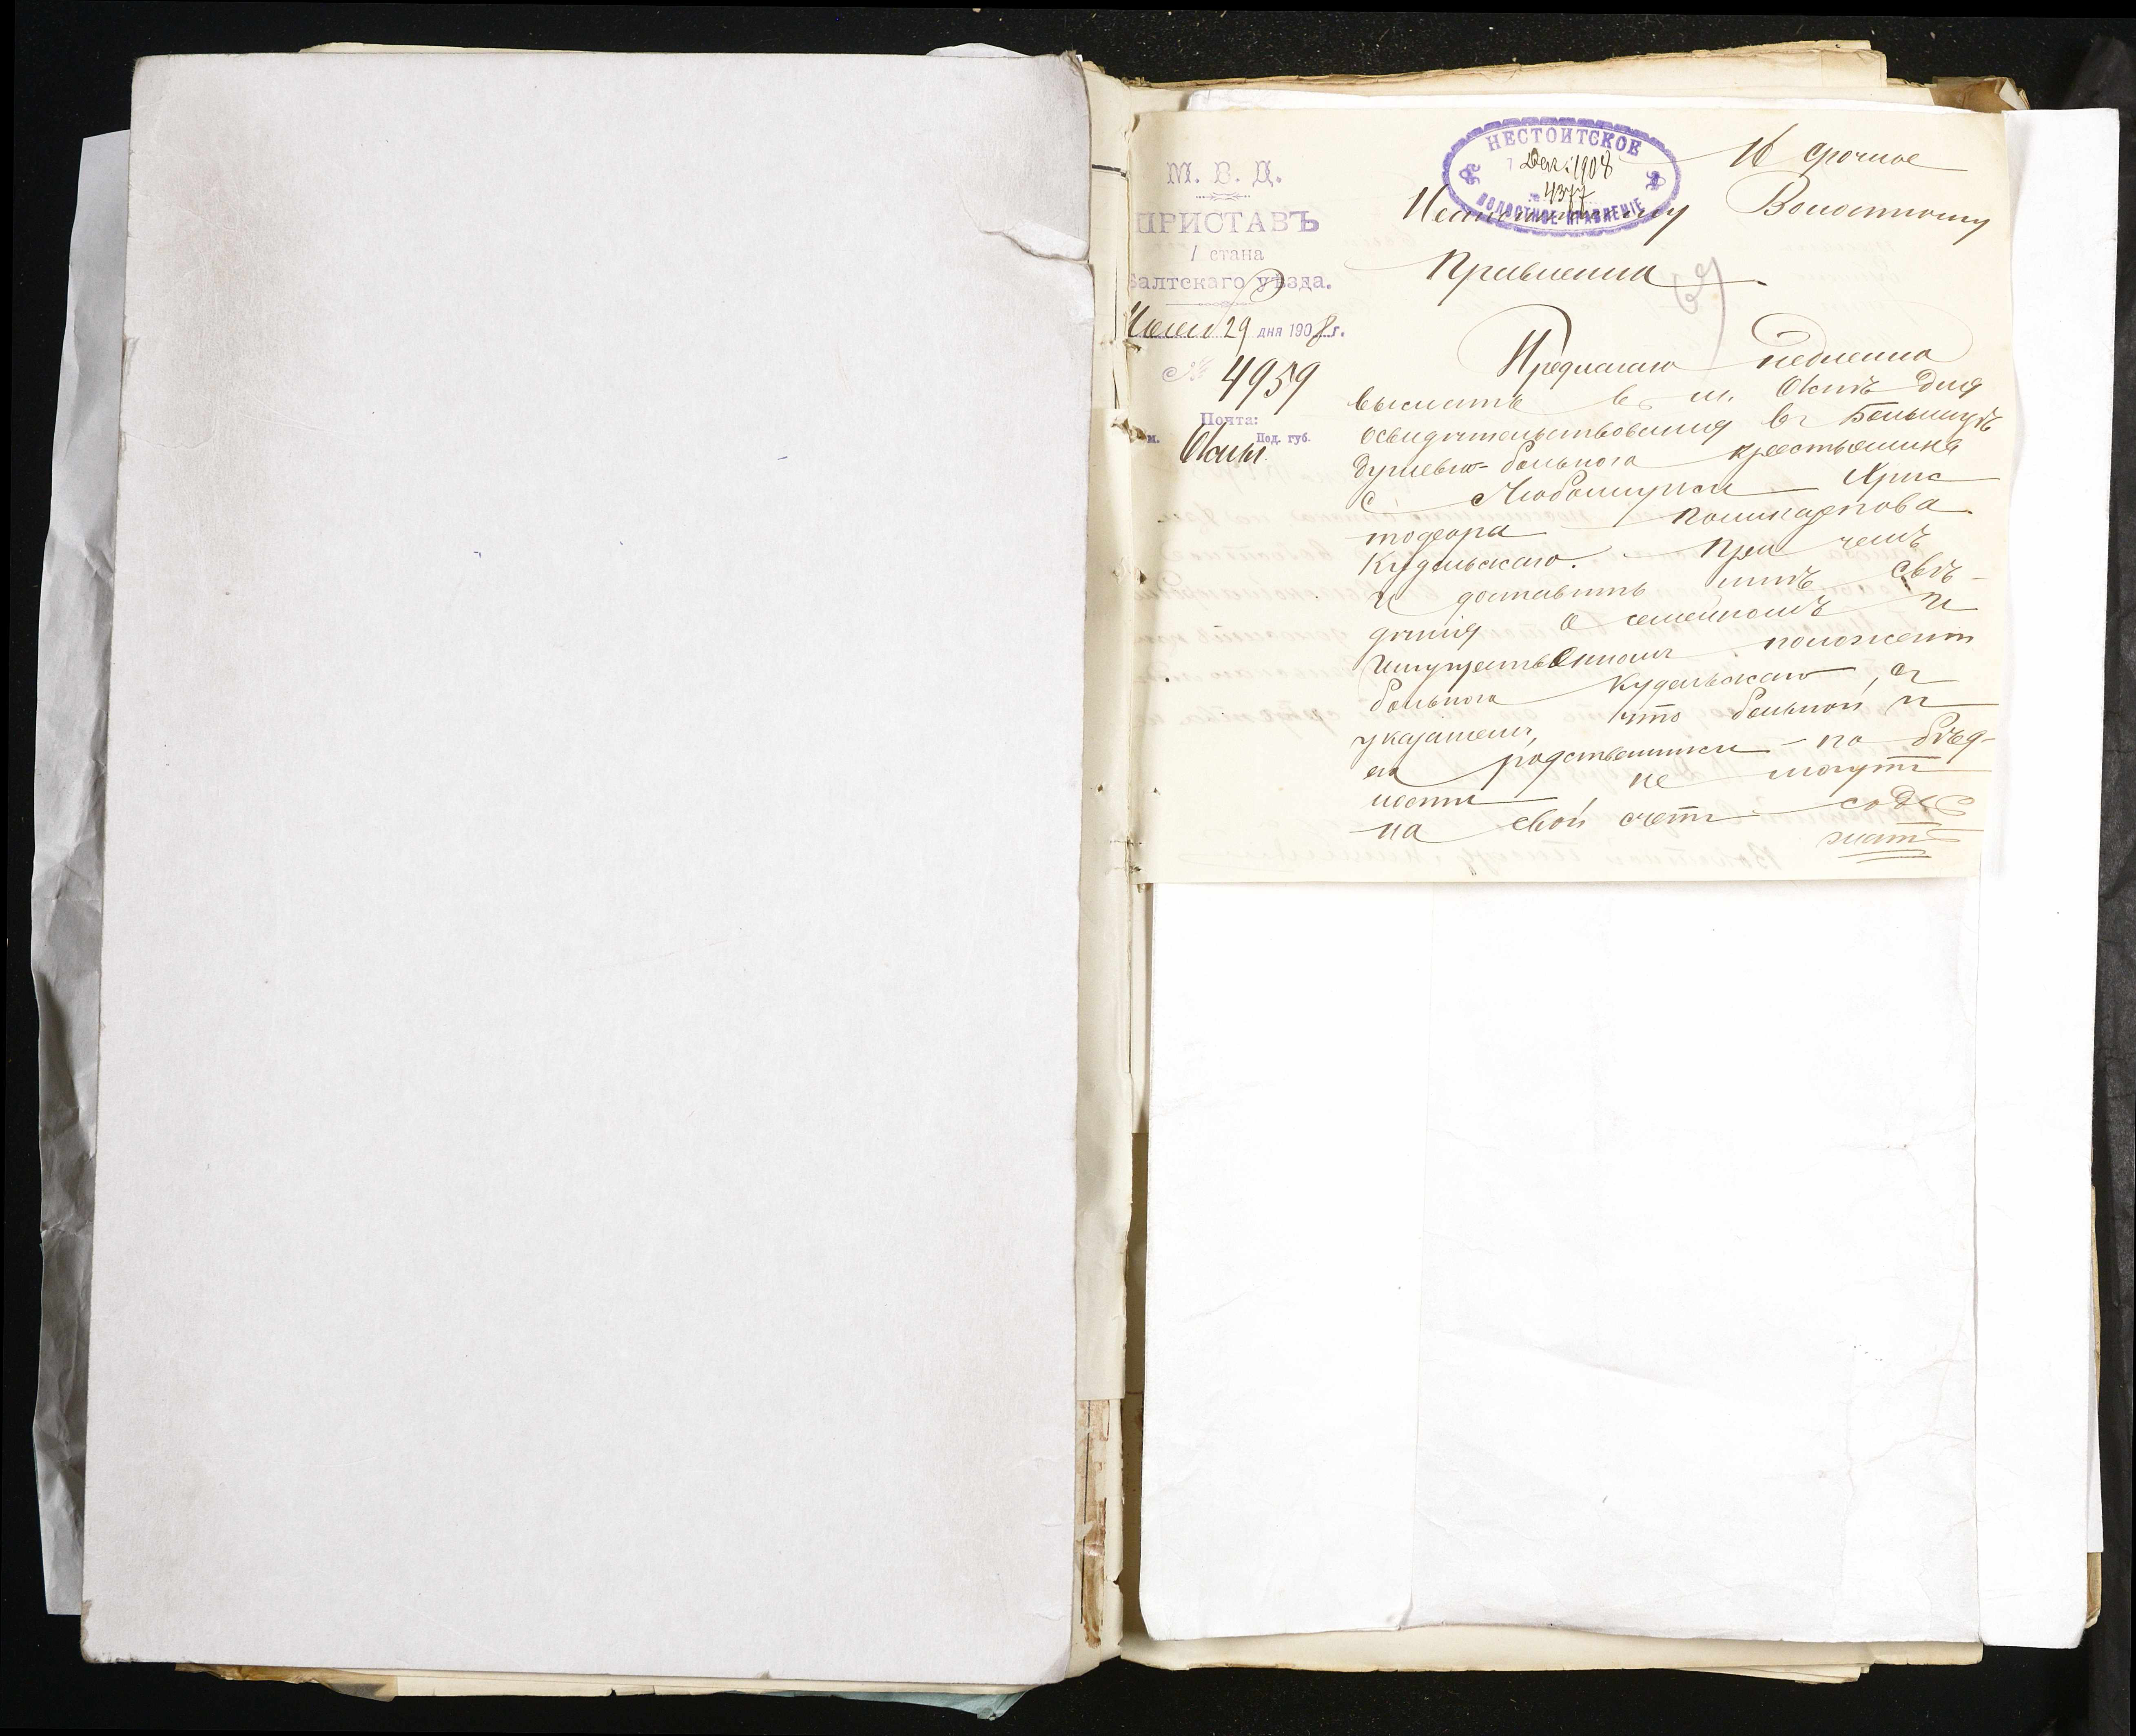 М. В. Д.
ПРИСТАВЪ
1 стана
Балтскаго уѣзда.
29 дня 1908 г.
№ 4959
Почта:
м. Окны Под. губ.
НЕСТОИТСКОЕ
7 Дек. 1908
№ 4377
ВОЛОСТНОЕ ПРАВЛЕНІЕ
срочное
Нестоитскому Волостному
Правленію
69
Предлагаю
выслать въ м. Окнъ для
освидѣтельствованія въ Больницѣ
душевно-больнога крестьянина
с Любомирки Хрис
тофора Поликарпова
Кудельскаго. При чемъ
и доставить мнѣ свѣ-
дѣнія о семейномъ и
имущественномъ положеніи
больнога Кудельскаго, съ
указаніемъ, что больной и
его родственники - по бѣд-
ности не могутъ
на свой счетъ содер
жать